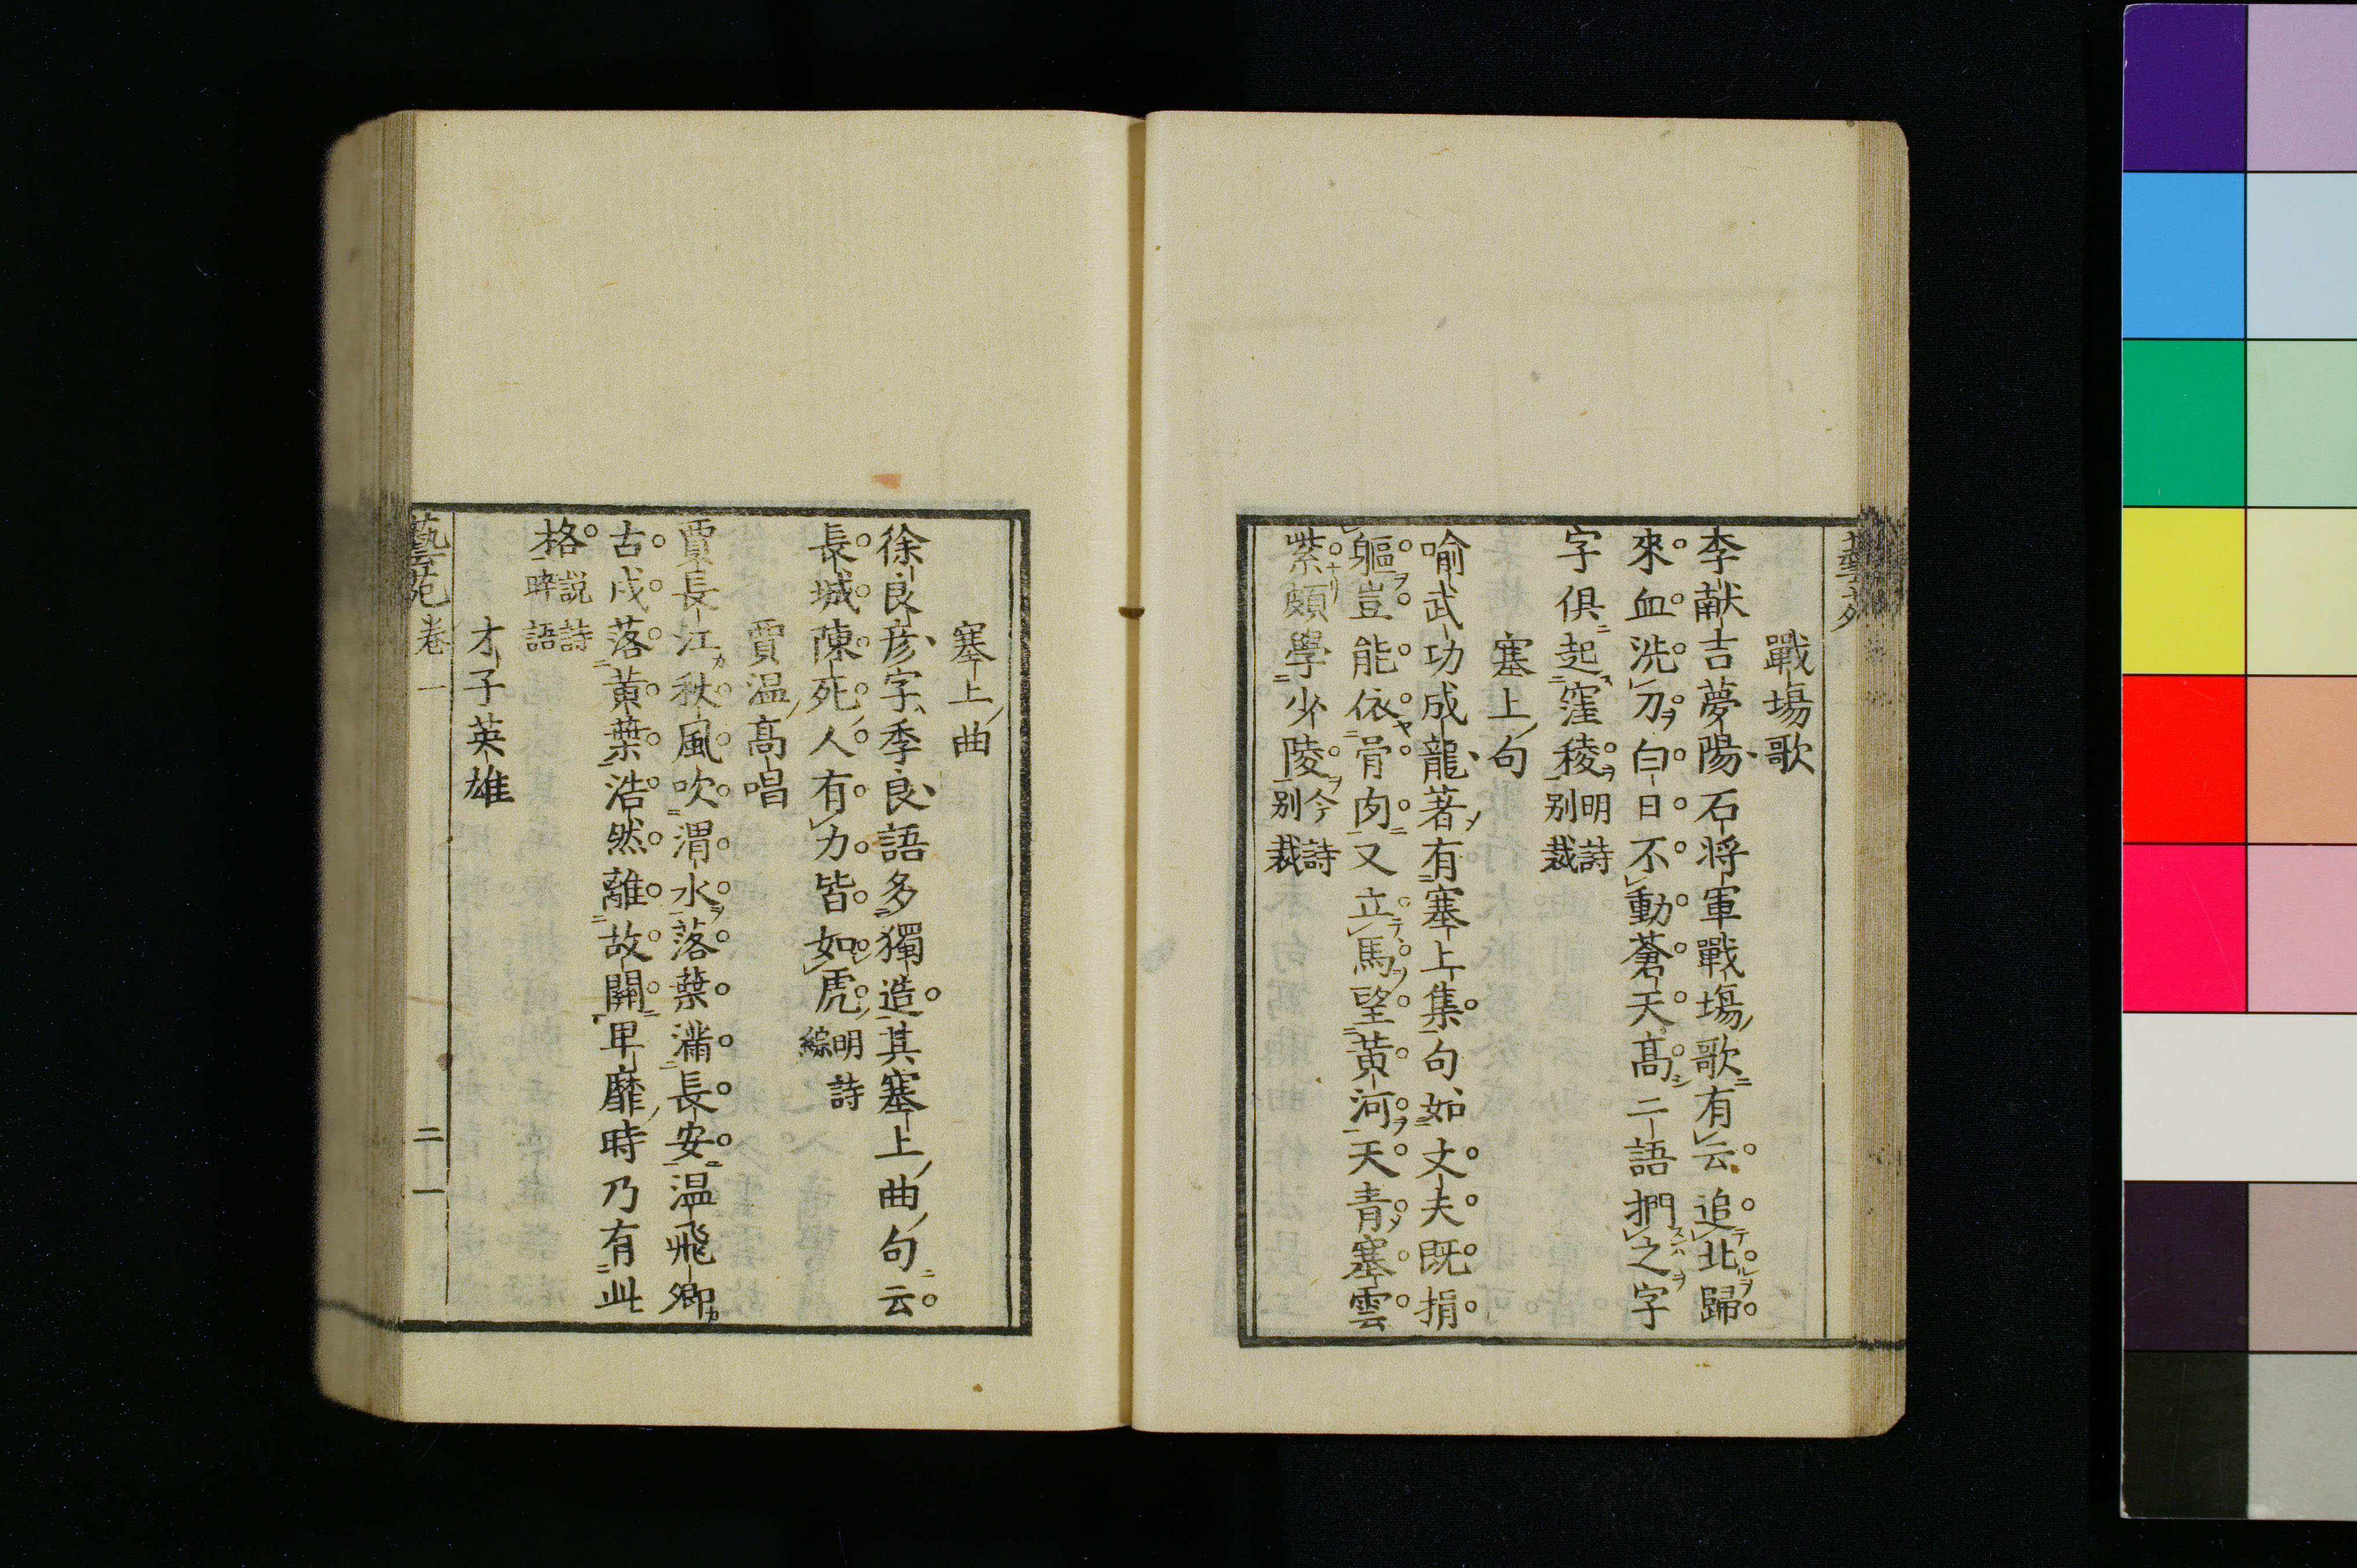 戰塲歌
李献吉夢陽石将軍戰塲歌有云追北歸
來血洗刀白日不動蒼天髙二語捫之字
字俱起窪稜明詩别裁
塞上句
喻武功成龍著有塞上集句如丈夫既捐
軀豈能依骨肉又立馬望黄河天青塞雲
紫頗學少陵今詩别裁
塞上曲
徐良彦字季良語多獨造其塞上曲句云
長城陳死人有力皆如虎明詩綜
賈温髙唱
賈長江秋風吹渭水落葉滿長安温飛卿
古戍落黄葉浩然離故關卑靡時乃有此
格説詩晬語
才子英雄
藝苑卷一 二一